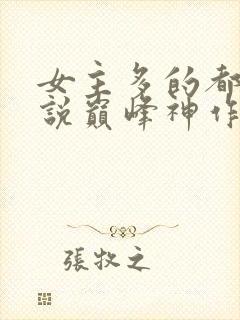 女主多的都
說巔峰神作
張牧之